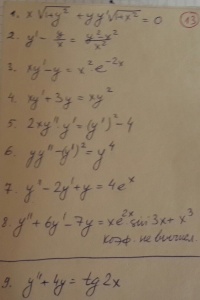 13
1. x√1+y² + yy'√1+x² = 0
2. y' - y/x = y²x²/x²
3. xy' - y = x²e^(-2x)
4. xy' + 3y = xy²
5. 2xy''y' = (y')² - 4
6. yy'' - (y')² = y⁴
7. y'' - 2y' + y = 4eˣ
8. y'' + 6y' - 7y = xe^(2x) sin 3x + x³
коэф. не вычисл.
9. y'' + 4y = tg 2x